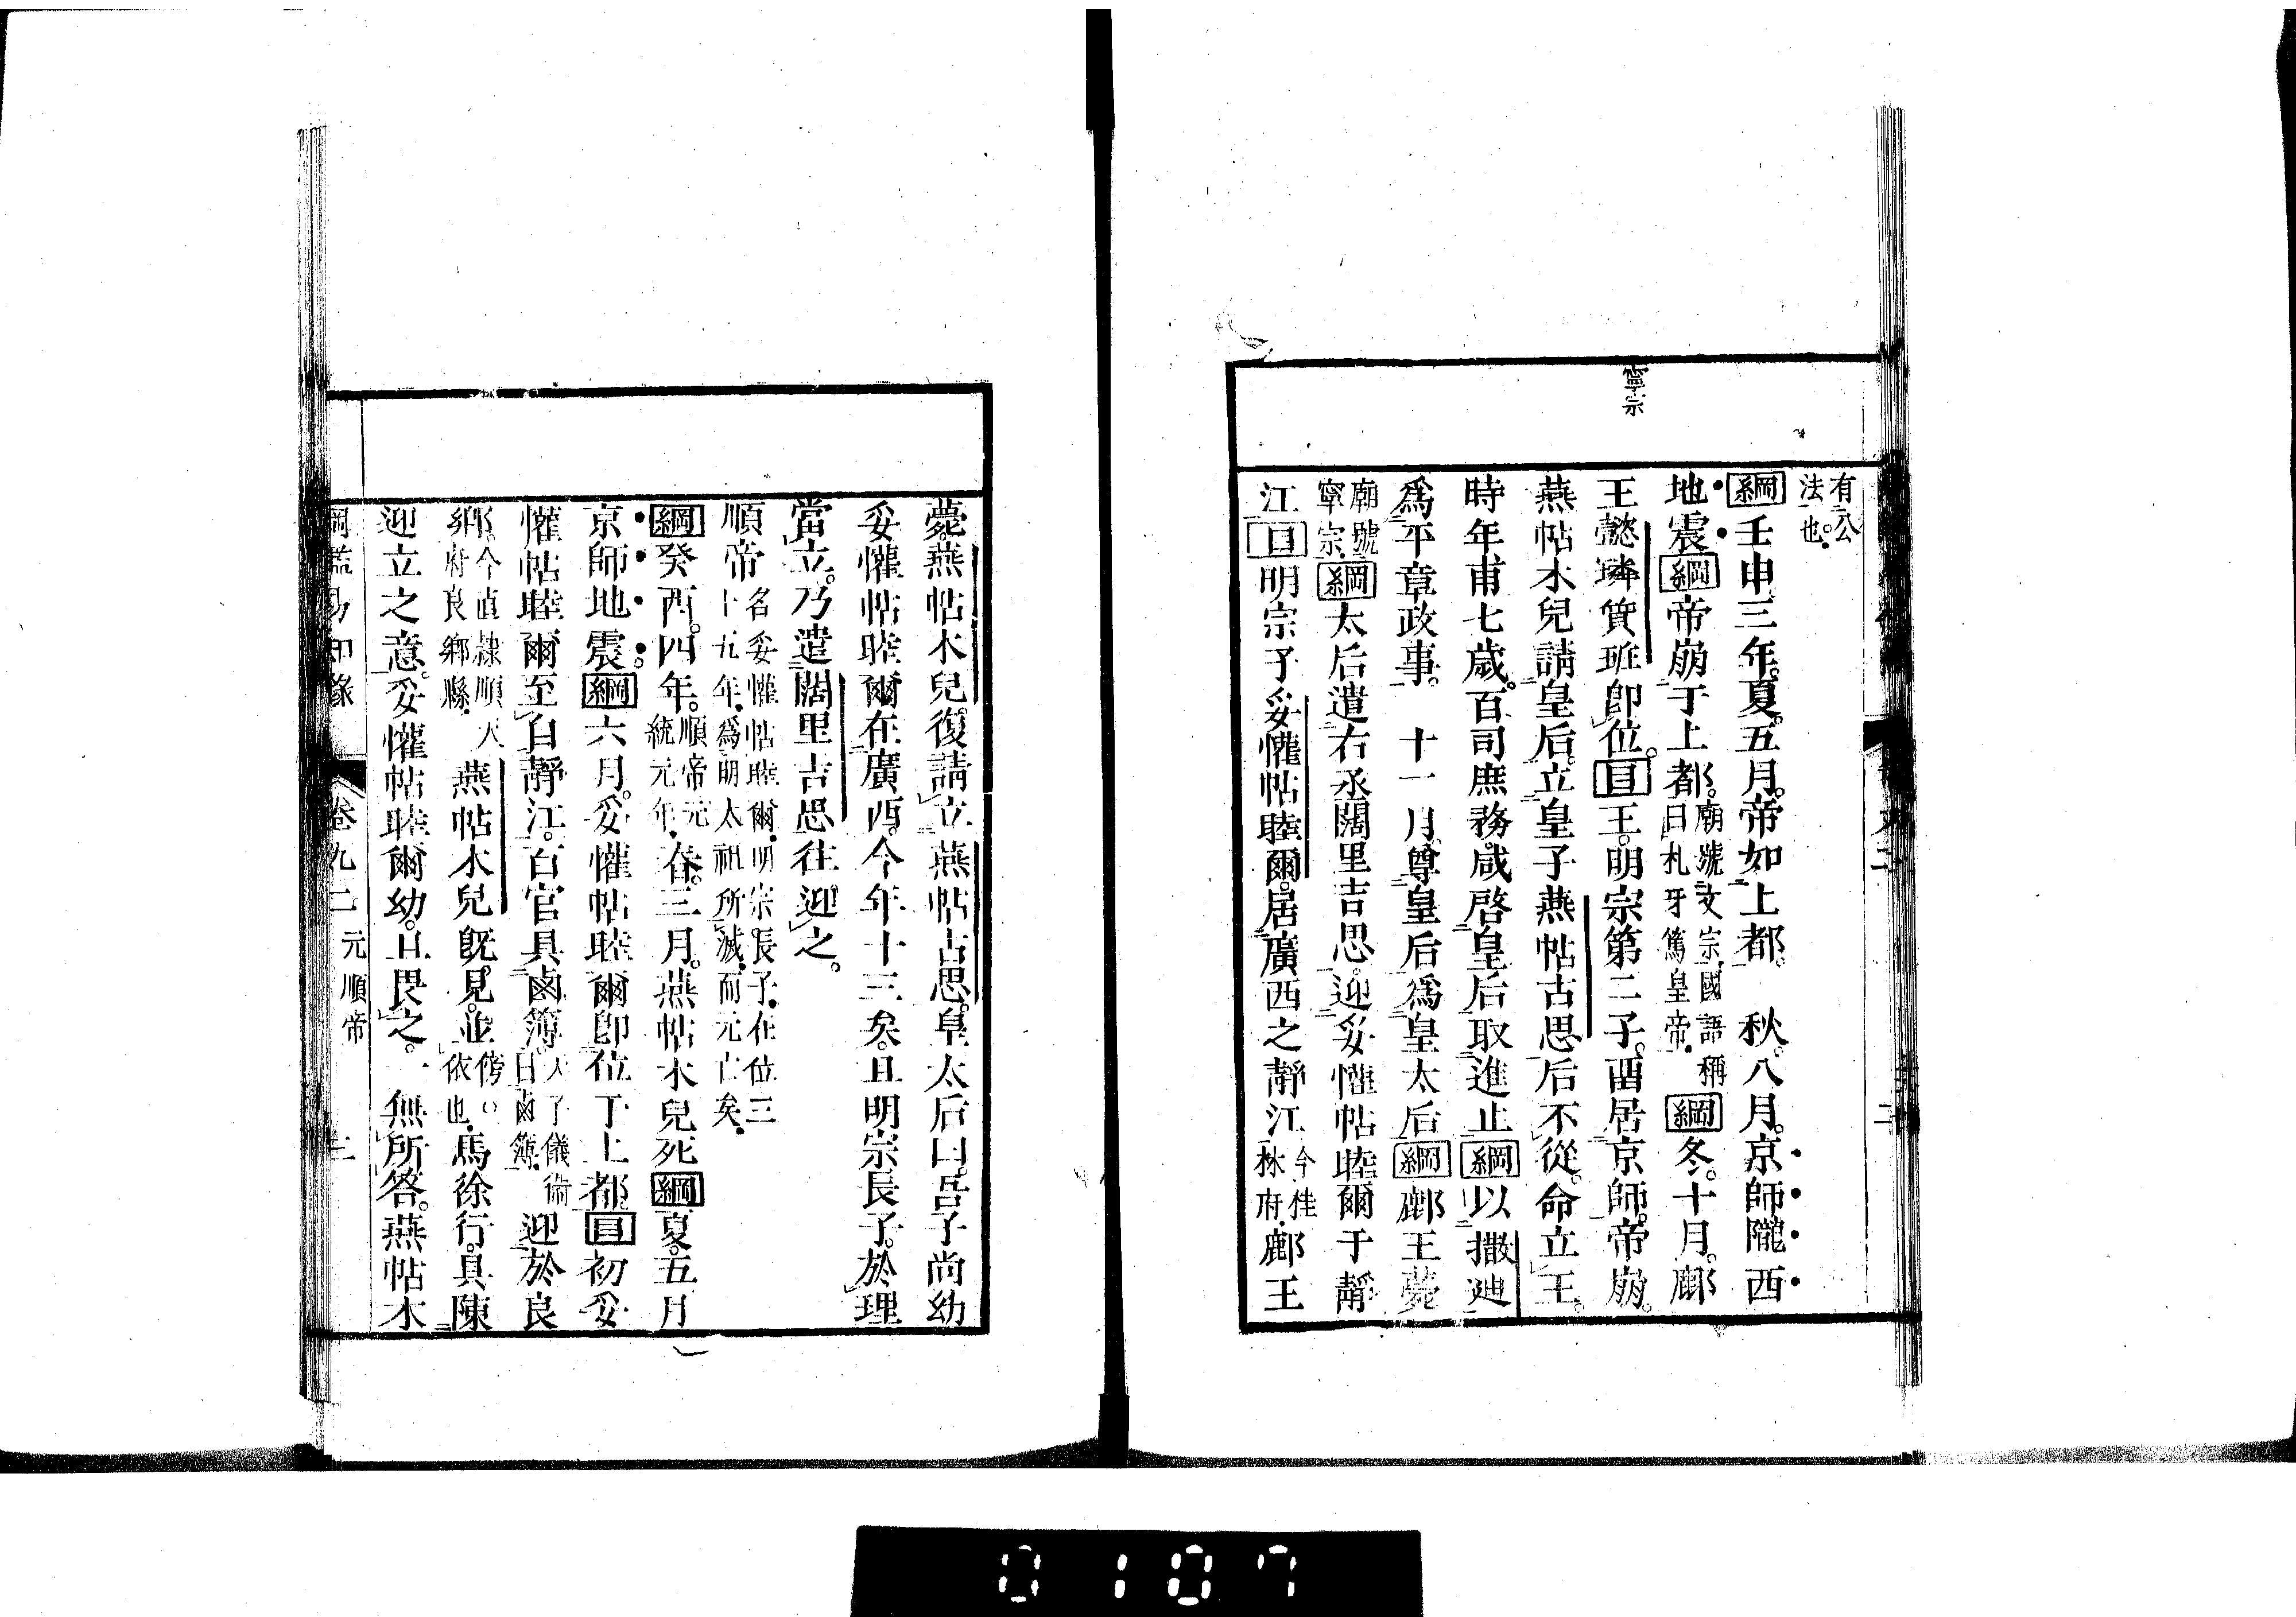 寧宗
有公
法也。
綱壬申三年。夏。五月。帝如上都。　秋。八月。京師隴西
地震綱帝崩于上都。廟號文宗。國語稱曰札牙篤皇帝。綱冬。十月。鄜
王懿璘質班卽位。目王。明宗第二子。畱居京師。帝崩。
燕帖木兒請皇后。立皇子燕帖古思。后不從。命立王。
時年甫七歲。百司庶務。咸啓皇后取進止綱以撒迪
爲平章政事。　十一月。尊皇后爲皇太后綱鄜王薨
廟號寧宗。綱太后遣右丞闊里吉思。迎妥懽帖睦爾于靜
江目明宗子妥懽帖睦爾。居廣西之靜江今桂林府。鄜王
薨。燕帖木兒。復請立燕帖古思。皇太后曰。吾子尚幼
妥懽帖睦爾在廣西。今年十三矣。且明宗長子。於理
當立。乃遣闊里吉思往迎之。
順帝名妥懽帖睦爾。明宗長子。在位三十九年。爲明太祖所滅。而元亡矣。
綱癸酉。四年。順帝元統元年。春。三月。燕帖木兒死綱夏。五月
京師地震。綱六月。妥懽帖睦爾卽位于上都。目初妥
懽帖睦爾至自靜江。百官具鹵簿。天子儀衞曰鹵簿。迎於良
鄉。今直隸順天府良鄉縣。燕帖木兒旣見。並傍。依也。馬徐行。具陳
迎立之意。妥懽帖睦爾幼。且畏之。一無所答。燕帖木
綱鑑易知錄　卷九二　元順帝　三
0107